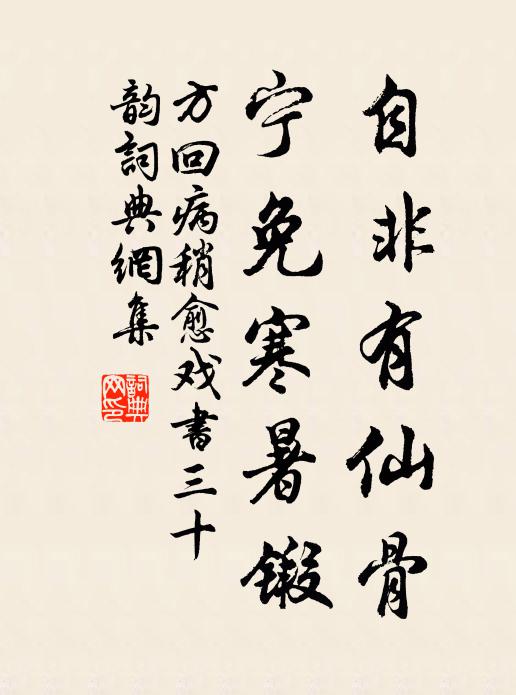 自非有仙骨
宁免寒暑锻
方回病稍愈戏書三十
韵詞典網集
詞典网印